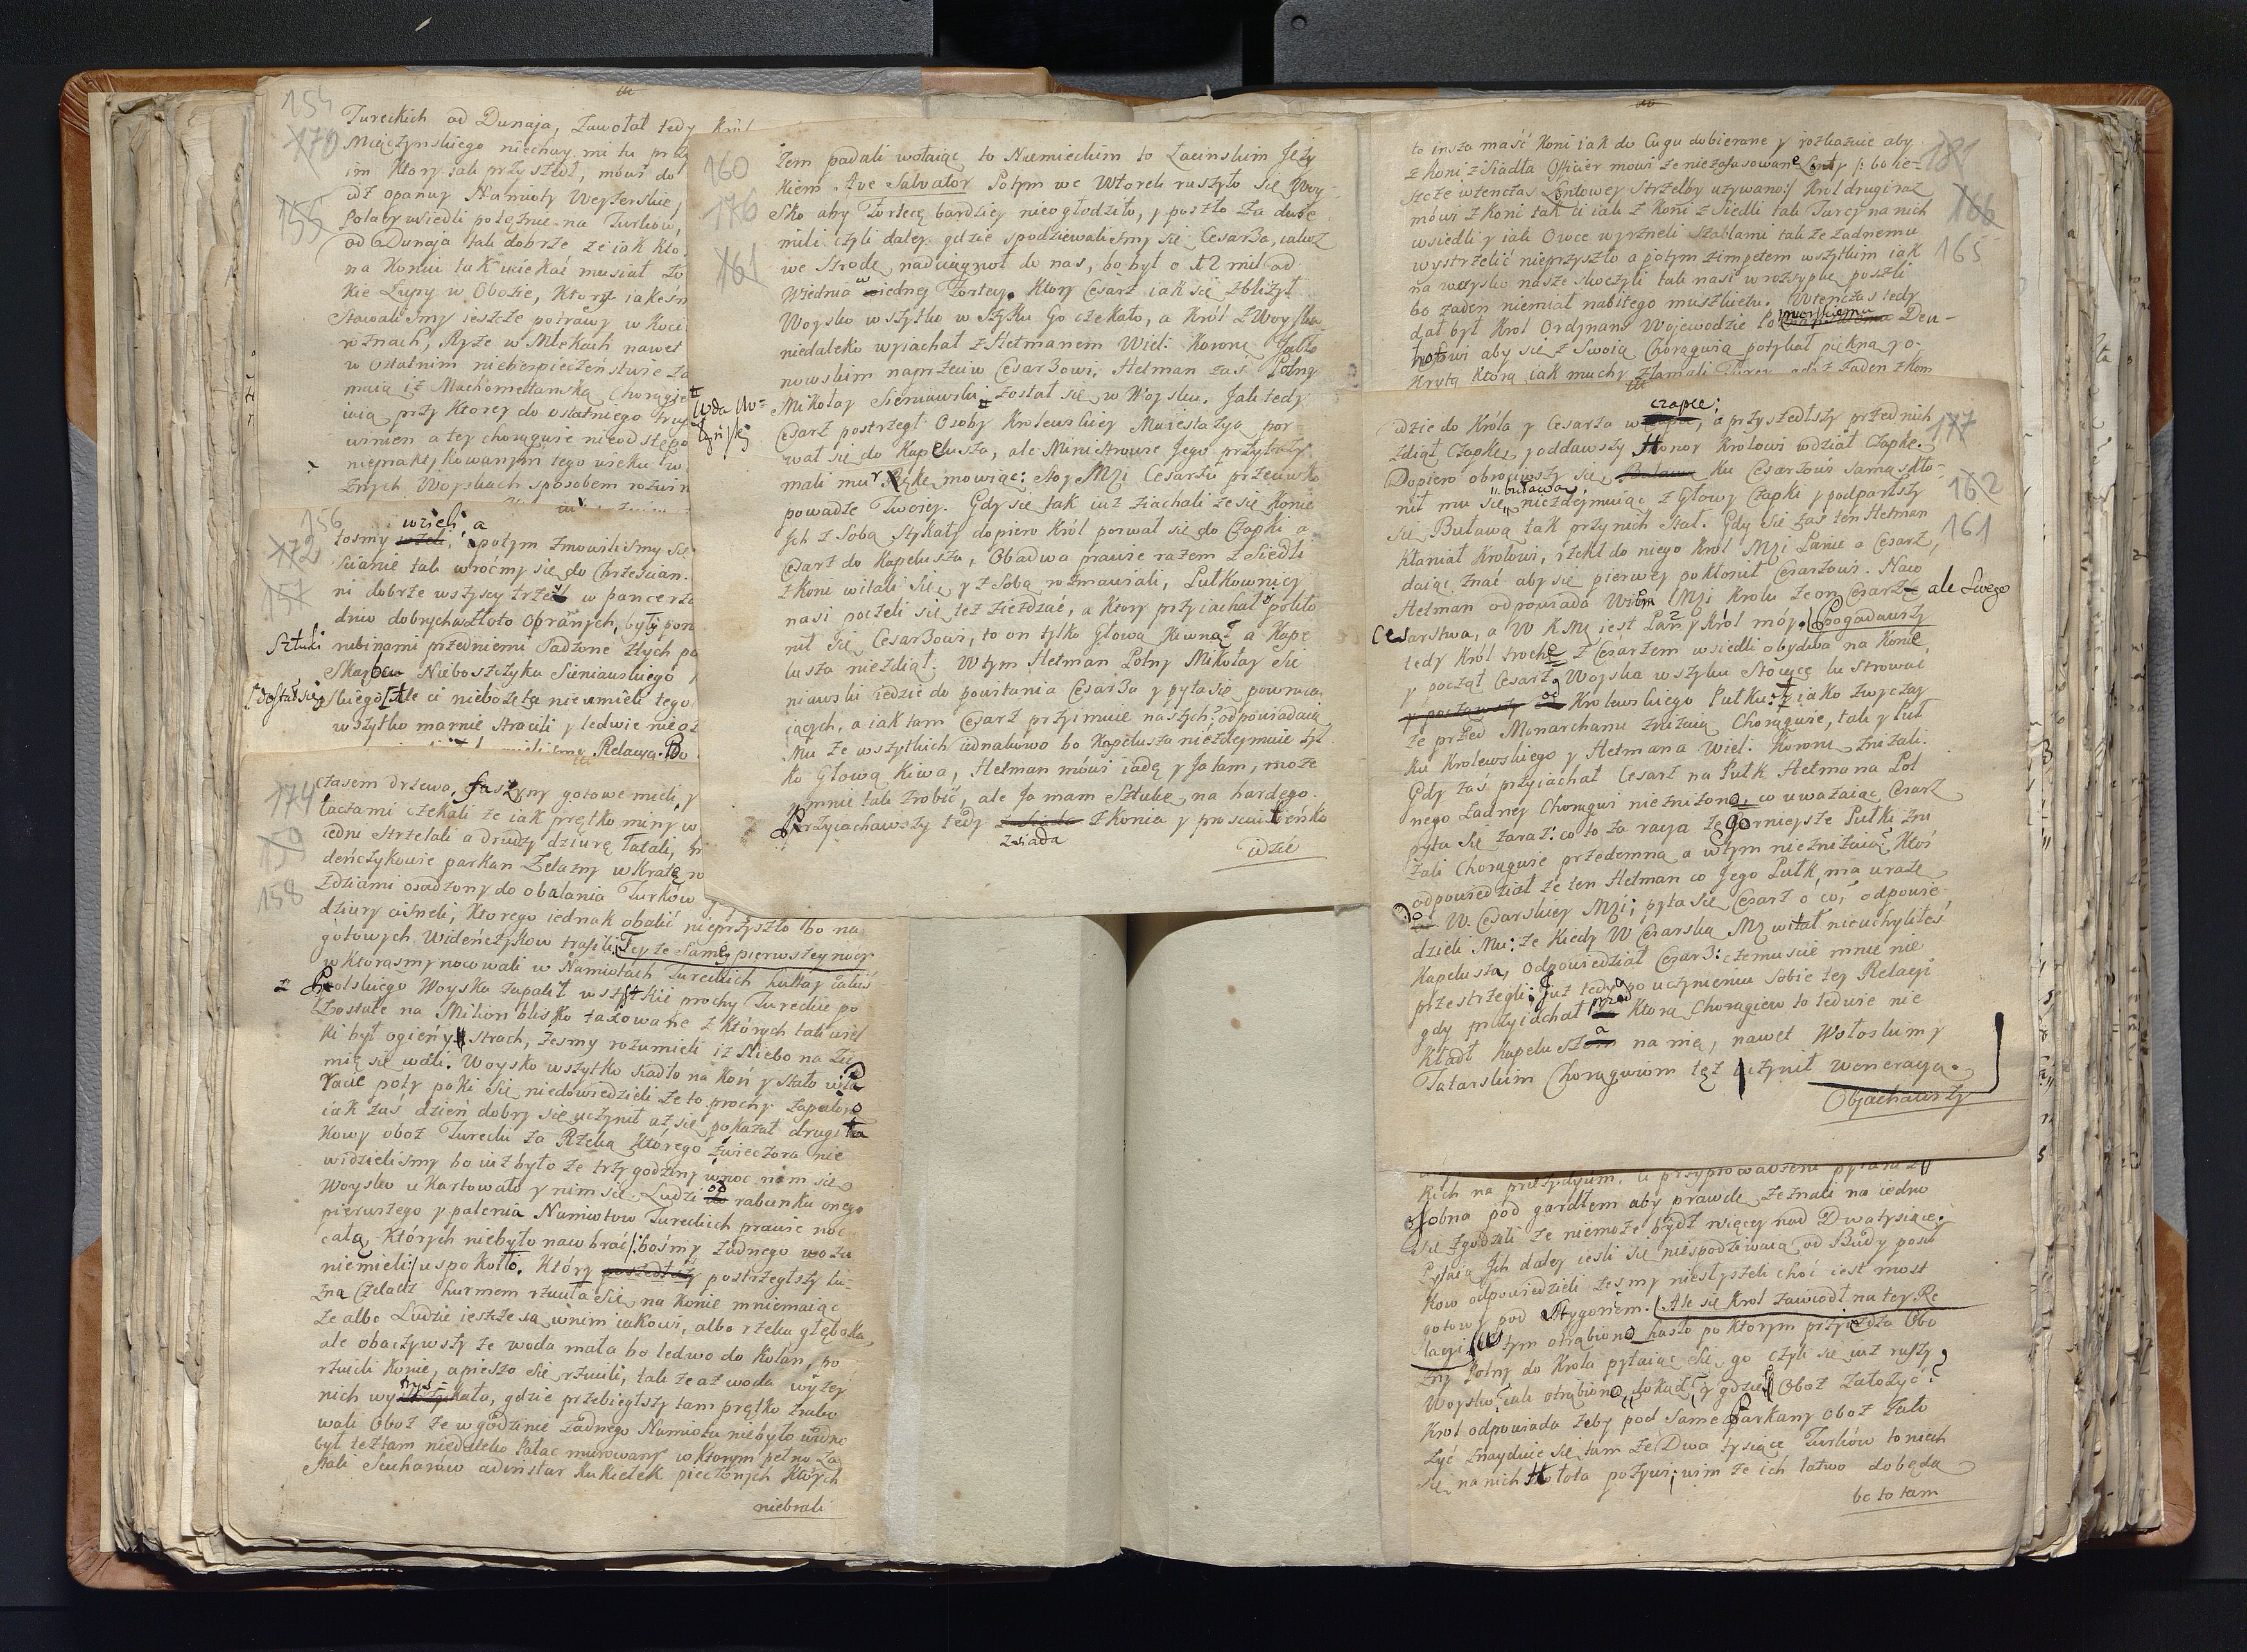 154
170
155
Tureckich od Dunaja, zawołał tedy Król
Miączynskiego niechay mi tu przy
im Który tak przyszedł, mówi do
idź opanuy Namioty Wezyerskie,
Polacy wsiedli potężnie na Turków,
od Dunaja tak dobrze że iak kto
na Koniu tak uciekać musiał zo
kie Łupy w Obozie, Który iakeśm
Stawalismy ieszcze potrawy w Koci
rożnach, Ryże w Mlekach nawet
w ostatnim niebezpieczeństwie za
maią iż Machometańską Chorągie
wią przy Ktorey do ostatniego trup
usmien a tey chorągwie nieodstępo
niepraktykowanym tego wieku w
żnych Woyskach sposobem rozwin
156
172
157
wzieli, a
tosmy potym zmowilismy się
scianie tak wroćmy się do Chrzescian.
ni dobrze wszyscy trzey w pancerza
dniu dobrych złoto oprawnych, były pon
Sztuki rubinami przedniemi sadzone złych po
Skarbcu Nieboszczyka Sieniawskiego
dostał się skiego ale ci niebożęta nieumieli tego
wszytko marnie stracili y ledwie nie
Relacya. Po
174
159
158
czasem drzewa, faszyny gotowe mieli, y
taczami czekali że iak prętko miny w
iedni Strzelali a drudzy dziurę łatali,
deńczykowie parkan Żelazny w Kratę
żdziami osadzony do obalania Turków
dziury cisneli, Ktorego iednak obalić nieprzyszło bo na
gotowych Wideńczykow trafili. Teyże Samey pierwszey nocy
w Ktorąsmy nocowali w Namiotach Tureckich hultay iakiś
z Polskiego Woyska zapalił wszystkie prochy Tureckie po
zostałe na Milion blisko taxowane z których tak wiel
ki był ogień y strach, żesmy rozumieli iż Niebo na Zie
mię się wali. Woysko wszytko siadło na Koń y stało
poty poki się niedowiedzieli że to prochy zapalono
iak zaś dzień dobry się uczynił aż się pokazał drugi ta
kowy oboz Turecki za Rzeką którego zwieczora nie
widzielismy bo iuż było ze trzy godziny wnoc nim się
Woysko ukartowało y nim się Ludzi od rabunku onego
pierwszego y palenia Namiotow Tureckich prawie noc
całą Których niebyło naw brać /:bośmy żadnego wozu
niemieli:/ uspokoiło. Który postrzegszy lu-
źna Czeladź hurmem rzuciła się na Konie mniemaiąc
że albo Ludzie ieszcze są wnim iakowi, albo rzeka głęboka,
ale obaczywszy że woda mała bo ledwo do Kolan, po
rzucili Konie, a pieszo się rzucili, tak że aż woda wyżey
nich wytryskała, gdzie przebiegszy tam prętko zrabo
wali Oboz że w godzinie żadnego Namiotu niebyło widno
był też tam niedaleko Pałac murowany w Ktorym pełno Za
stali Sucharów adinstar kukiełek pieczonych Których
niebrali
160
176
161
żem padali wołaiąc to Niemieckim to Łacinskim Języ
kiem Ave Salvator Potym we Wtorek ruszyło się Woy-
sko aby Fortecę bardziey nieogłodziło, y poszło za dwie
mili czyli daley gdzie spodziewalismy się Cesarza, iakoż
we Srodę nadciągnoł do nas, bo był o 12 mil od
Wiednia w iedney Fortecy. Ktory Cesarz iak się zbliżył
Woysko wszytko w szyku Go czekało, a Król z Woyska
niedaleko wyiachał z Hetmanem Wiel: Koronn: Jabło
nowskim naprzeciw Cesarzowi, Hetman zaś Polny
Mikołay Sieniawski został się w Woysku. Jak tedy
Cesarz postrzegł Osoby Krolewskiey Maiestatya por
wał się do Kapelusza, ale Ministrowie Jego przytrzy
mali mu Rękę mowiąc: stoy Mći Cesarzu przeciwko
powadze Twoiey. Gdy się tak iuż ziachali że się Konie
Jch z Sobą stykały dopiero Król porwał się do Czapki a
Cesarz do Kapelusza, Obadwa prawie razem z Siedli
z koni witali się y z Sobą rozmawiali, Pułkownicy
nasi poczeli się też zieżdżać, a Ktory przyiachał y pokło
nił się Cesarzowi, to on tylko Głową kiwnął a Kape
lusza niezdiął. Wtym Hetman Polny Mikołay Sie
niawski iedzie do powitania Cesarza y pyta się powraca
iących, a iak tam Cesarz przyimuie naszych? odpowiadaią
Mu że wszytkich iednakowo bo Kapelusza niezdeymuie tyl
ko Głową kiwa, Hetman mówi iadę y Ja tam, może
y mnie tak zrobić, ale Ja mam Sztukę na hardego.
Przyiachawszy tedy zsiada z konia y prosciuteńko
idzie
181
166
165
to insza maść Koni iak do Cugu dobierane y rozkazuie aby
z Koni z Siadła Officier mowi że niezafasowane Lonty /: bo ie-
szcze wtenczas Lontowey strzelby używano:/ Krol drugi raz
mówi z Koni tak ci iak z Koni z Siedli tak Turcy na nich
wsiedli y iak Owce wyrzneli szablami tak że żadnemu
wystrzelić nieprzyszło a potym zimpetem wszytkim iak
na wszytko nasze skoczyli tak nasi w rozsypkę poszli
bo żaden niemiał nabitego muszkietu. Wtenczas tedy
dał był Krol Ordynans Wojewodzie Pomorskiemu Den-
hofowi aby się z Swoią Chorągwią potykał piękną y o-
krytą którą iak muchy złamali Turcy, gdyż żaden z kom
177
162
161
idzie do Króla y Cesarza w czapce; a przyszedszy przed nich
zdiął Czapkę, y oddawszy Honor Krolowi wdział Czapkę.
Dopiero obrociwszy się ku Cesarzowi samą skło-
nił mu się buławą, niezdeymuiąc z Głowy Czapki y podparszy
się Buławą tak przy nich stał. Gdy się zaś ten Hetman
kłaniał Krolowi, rzekł do niego Król Mći Panie a Cesarz,
daiąc znać aby się pierwey pokłonił Cesarzowi. Nato
Hetman odpowiada Wiem Mći Krolu że on Cesarz ale Swego
Cesarstwa, a W K Mć iest Pan y Król móy. Pogadawszy
tedy Król trochę z Cesarzem wsiedli obydwa na Konie
y począł Cesarz Woyska wszyku Stoiące lustrować
od Krolewskiego Pułku: y iako zwyczay
że przed Monarchami zniżaią Chorągwie, tak y Puł
ku Krolewskiego y Hetmana Wiel: Koronn: zniżali.
Gdy zaś przyiachał Cesarz na Pułk Hetmana Pol
nego żadney Chorągwi nieznizono, co uważaiąc Cesarz
pyta się zaraz: co to za racya że gornieysze Pułki zni
żali Chorągwie przedemną a wtym niezniżaią? Ktoś
odpowiedział że ten Hetman co Jego Pułk, ma urazę
do W. Cesarskiey Mći; pyta się Cesarz o co, odpowie
dzieli Mu: że kiedy W Cesarska Mć witał nieuchyliłeś
Kapelusza, Odpowiedział Cesarz: czemuscie mnie nie
przestrzegli; Już tedy po uczynieniu Sobie tey Relacyi
gdy przyiachał przed Ktorą Chorągiew to ledwie nie
kładł Kapelusza na nią, nawet Wołoskim y
Tatarskim Chorągwiom też uczynił weneracyą.
Objachawszy
kich na prezydyum, ci przyprowadzeni pytani z
osobna pod gardłem aby prawdę zeznali na iedno
się zgodzili że niemoże bydź więcey nad Dwa tysiące.
Pytaią Jch daley iesli się niespodziewaią od Budy posił
kow odpowiedzieli żesmy niesłyszeli choć iest most
gotowy pod Strygoniem. Ale się Krol zawiodł na tey Re
lacyi wtym otrąbiono hasło po ktorym przyieżdża Obo
zny Polny do Krola pytaiąc się go czyli się iuż ruszy
Woysko iak otrąbiono, dokąd y gdzie Oboz założyć?
Krol odpowiada żeby pod same Parkany Oboz zało
żyć znayduie się tam ze Dwa tysiące Turków to niech
się na nich Hołota pożywi; wim że ich łatwo dobędą
bo to tam